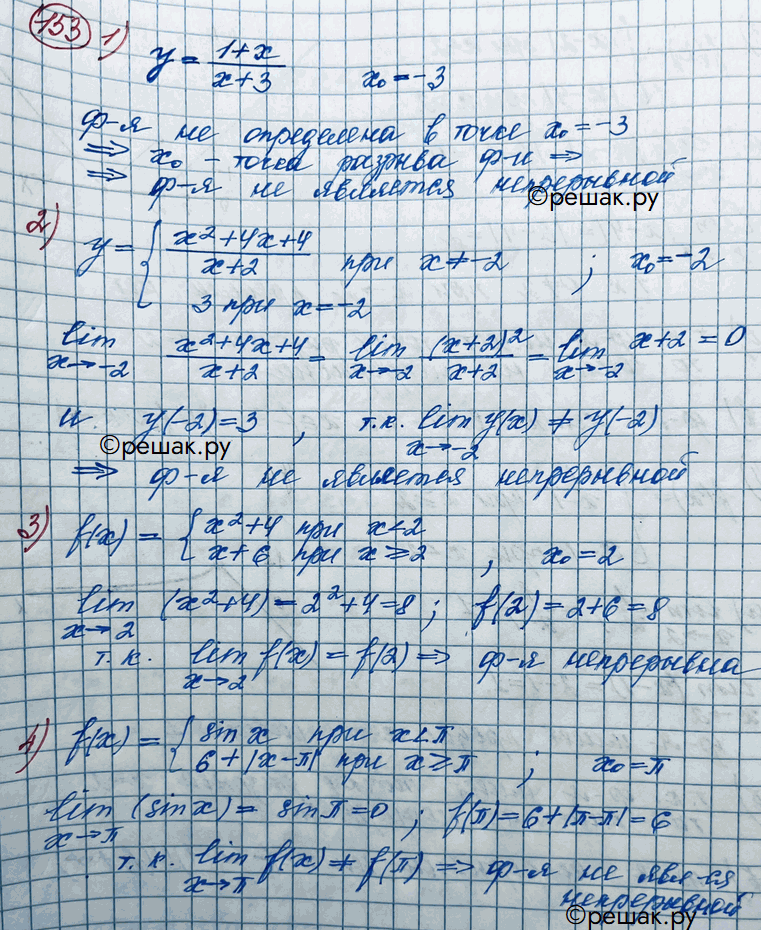 153 1) y = (1+x)/(x+3) x₀ = -3
ф-я не определена в точке x₀ = -3
⇒ x₀ - точка разрыва ф-и ⇒
⇒ ф-я не является непрерывной
©решак.ру
2) y = { (x²+4x+4)/(x+2) при x ≠ -2 ; x₀ = -2
3 при x = -2
lim x→-2 (x²+4x+4)/(x+2) = lim x→-2 (x+2)²/(x+2) = lim x→-2 x+2 = 0
и y(-2) = 3 , т.к. lim x→-2 y(x) ≠ y(-2)
©решак.ру
⇒ ф-я не является непрерывной
3) f(x) = { x²+4 при x < 2
x+6 при x ≥ 2 ; x₀ = 2
lim x→2 (x²+4) = 2²+4 = 8 ; f(2) = 2+6 = 8
т.к. lim x→2 f(x) = f(2) ⇒ ф-я непрерывна
4) f(x) = { sin x при x < π
6+|x-π| при x ≥ π ; x₀ = π
lim x→π (sin x) = sin π = 0 ; f(π) = 6+|π-π| = 6
т.к. lim x→π f(x) ≠ f(π) ⇒ ф-я не явл-ся
непрерывной
©решак.ру